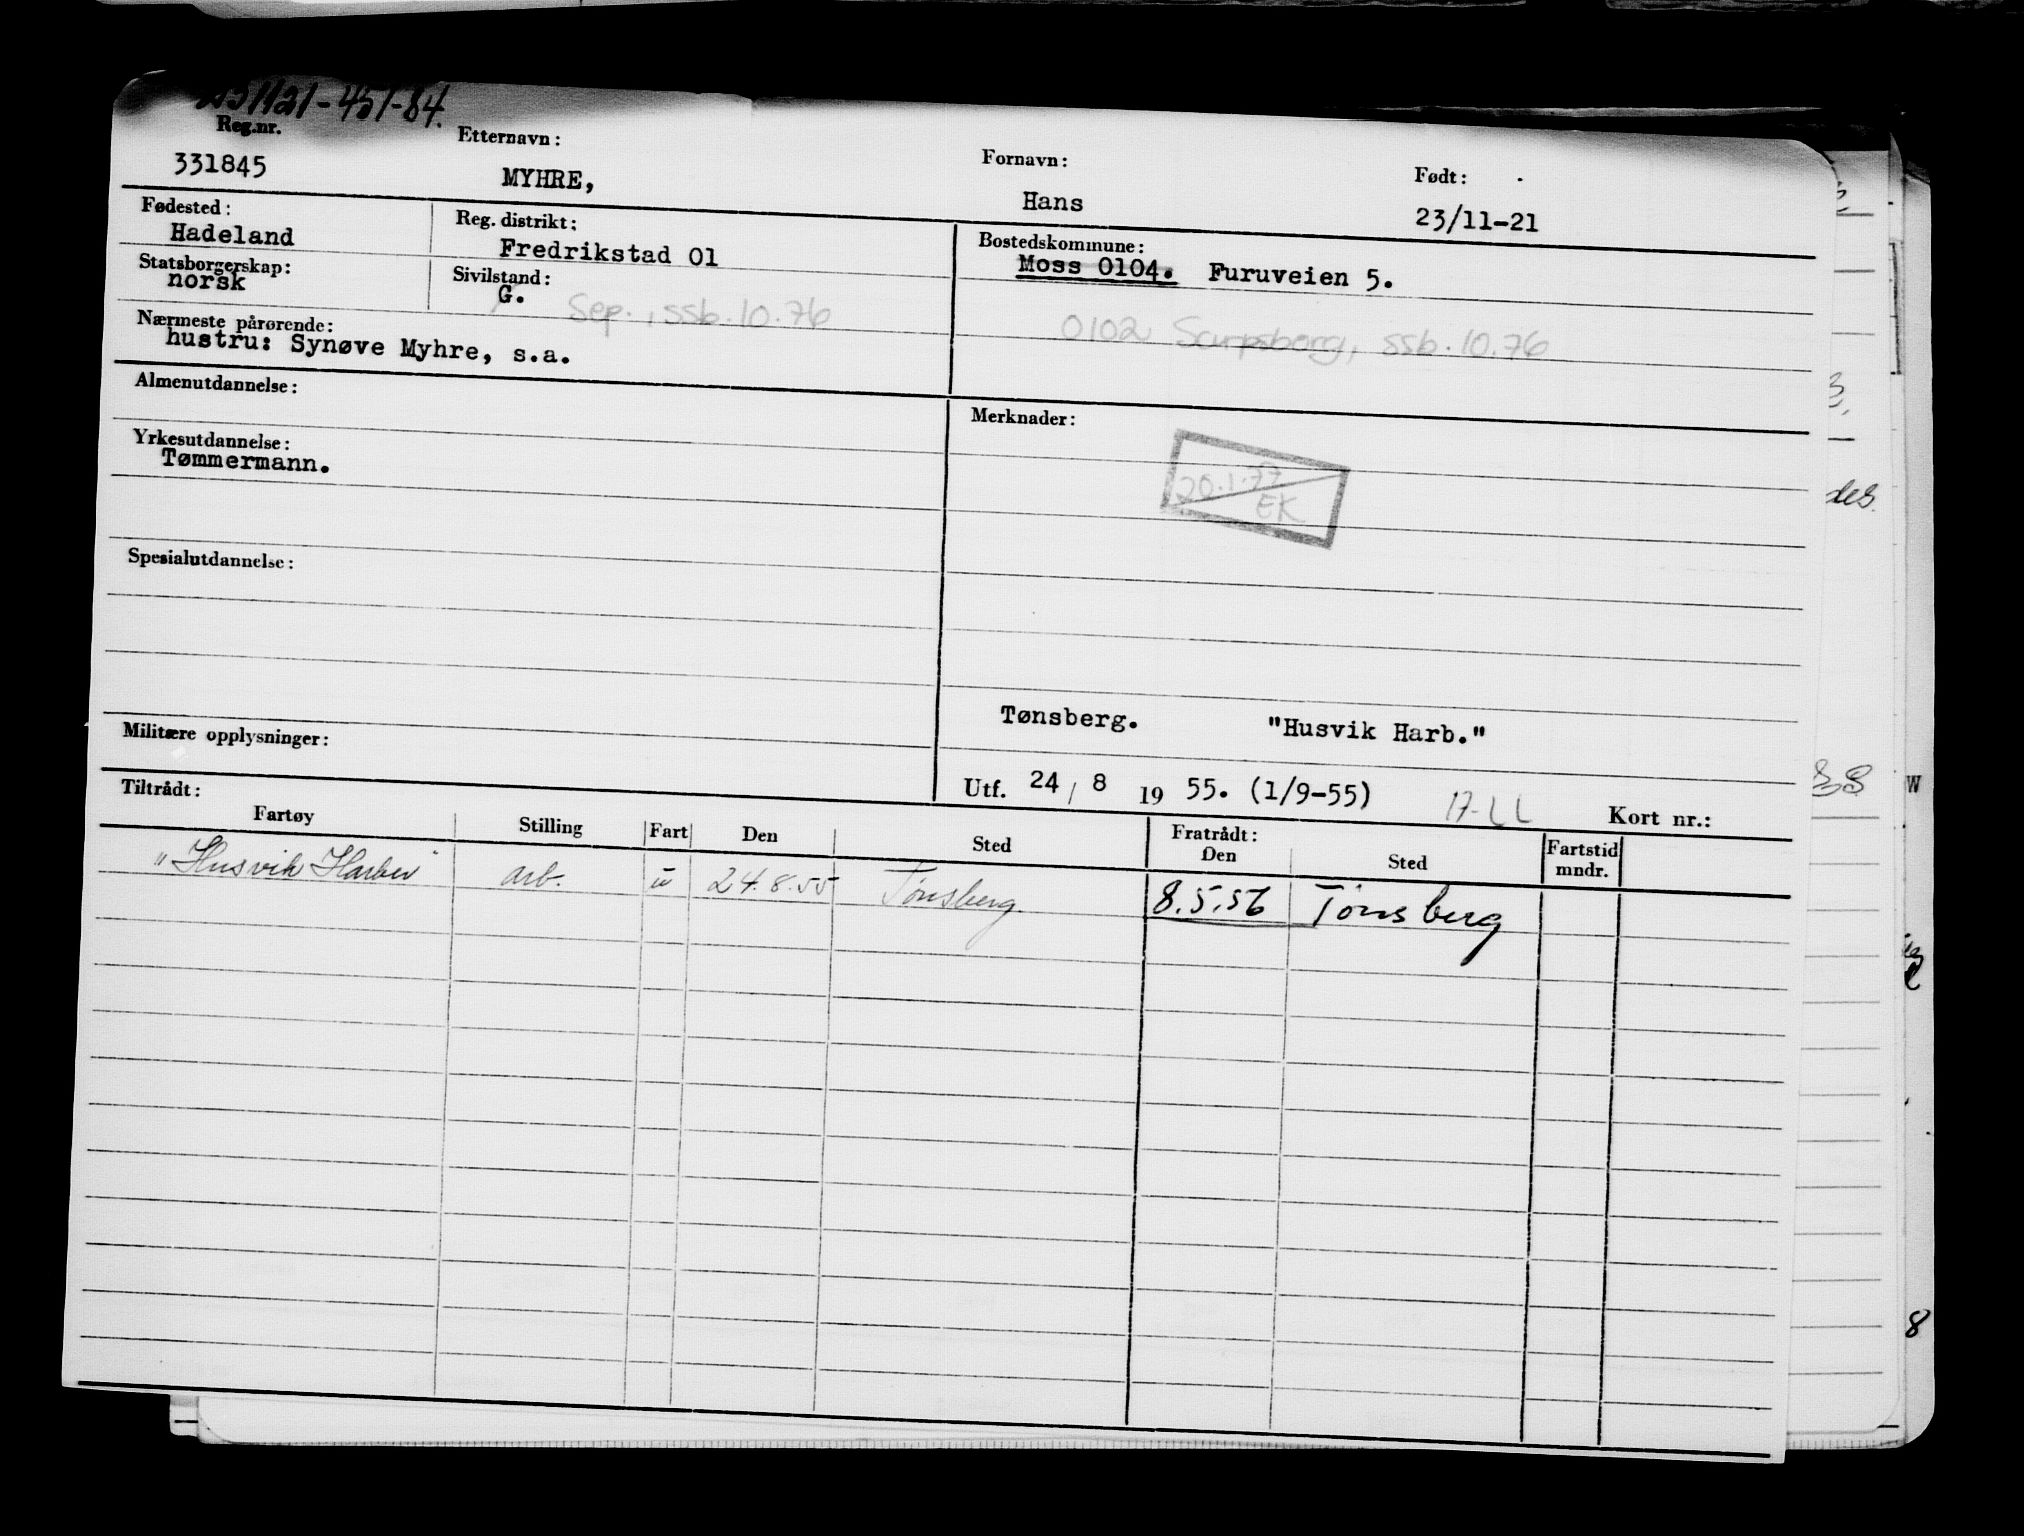 231121-451-84.
Reg.nr. Etternavn: Fornavn: Født:
331845 MYHRE, Hans 23/11-21
Fødested: Reg. distrikt: Bostedskommune:
Hadeland Fredrikstad 01 Moss 0104. Furuveien 5.
Statsborgerskap: Sivilstand:
norsk G. Sep., ssb. 10.76
0102 Sarpsberg, ssb. 10.76
Nærmeste pårørende:
hustru: Synøve Myhre, s.a.
Almenutdannelse: Merknader:
Yrkesutdannelse:
Tømmermann.
20.1.77
EK
Spesialutdannelse:
Tønsberg. "Husvik Harb."
Militære opplysninger:
Utf. 24 / 8 19 55. (1/9-55) Kort nr.:
Tiltrådt: Fratrådt:
Fartøy Stilling Fart Den Sted Den Sted Fartstid mndr.
"Husvik Harber" arb. u 24.8.55 Tønsberg 8.5.56 Tønsberg
des.
W
8